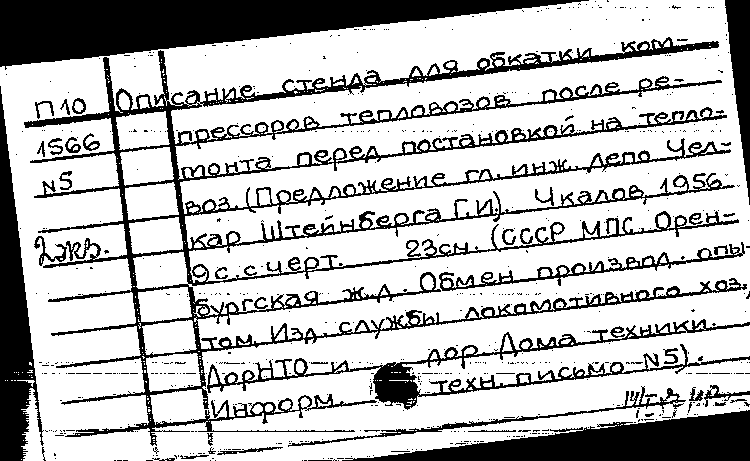 П10 Описание стенда для обкатки ком-
1566 прессоров тепловозов после ре-
N5 монта перед постановкой на тепло-
воз. (Предложение гл. инж. депо Чел-
2 экз. кар Штейнберга Г.И). Чкалов, 1956
9с. с черт. 23см. (СССР МПС. Орен-
бургская ж.д. Обмен производ. опы-
том, Изд. службы локомотивного хоз.,
ДорНТО и дор. Дома техники.
Информ. техн. письмо N5).